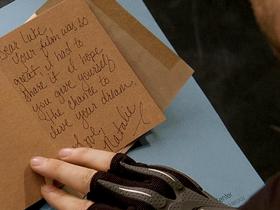 Dear Luke
Your film was so
great, i had to
share it. I hope
you give yourself
the chance to
live your dream.
Love,
Natalie
center